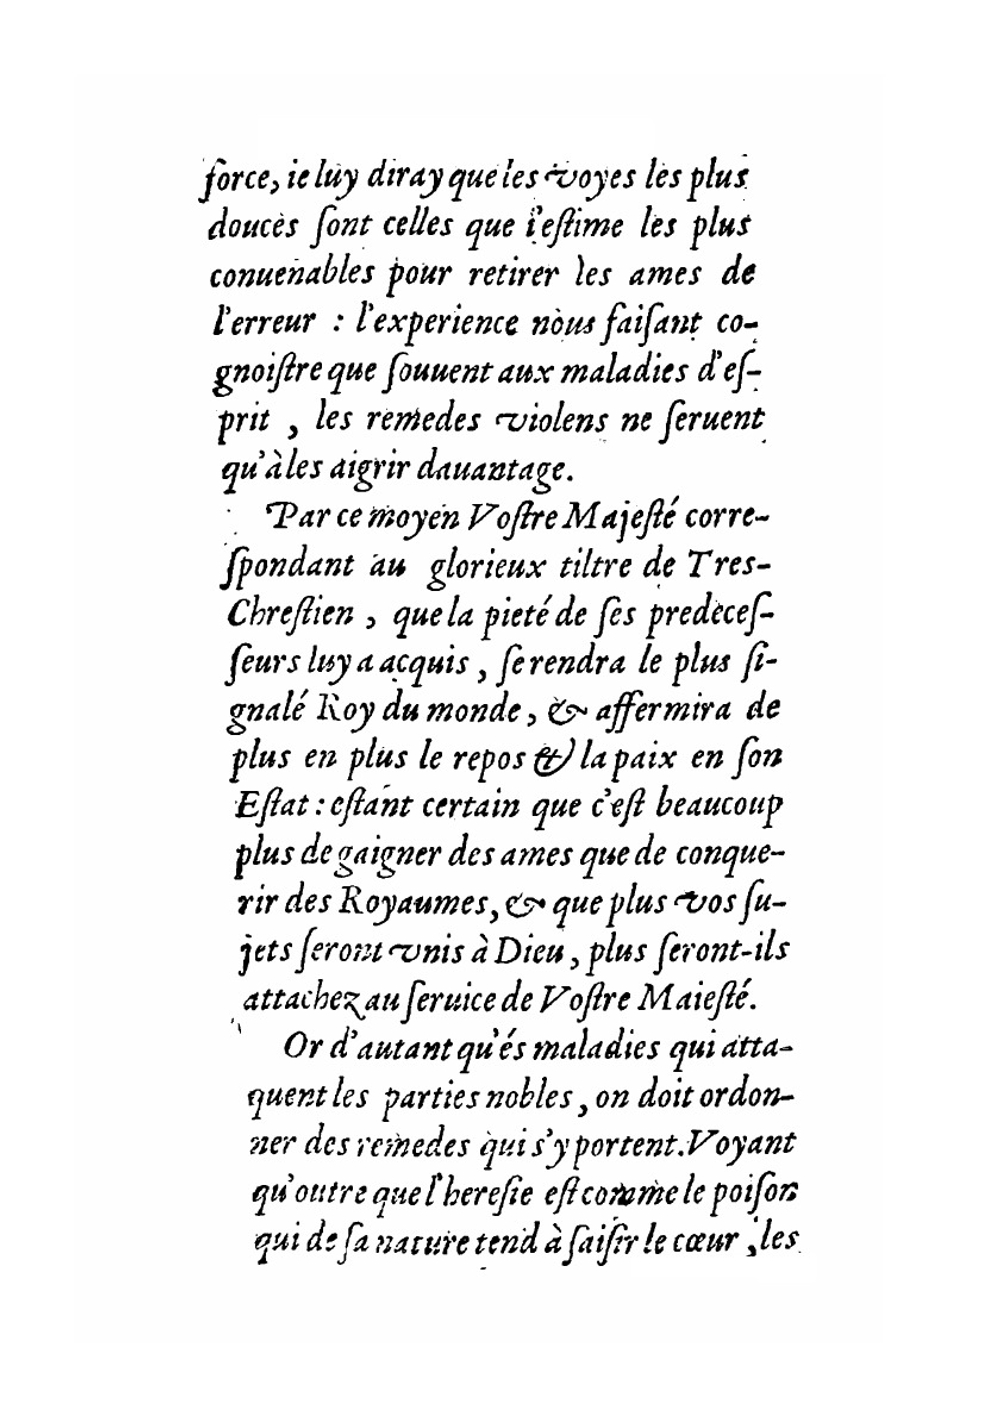 force, ie luy diray que les voyes les plus
douces ſont celles que i'eſtime les plus
conuenables pour retirer les ames de
l'erreur : l'experience nous faiſant co-
gnoiſtre que ſouuent aux maladies d'eſ-
prit , les remedes violens ne ſeruent
qu'à les aigrir dauantage.
Par ce moyen Voſtre Majeſté corre-
ſpondant au glorieux tiltre de Tres-
Chreſtien , que la pieté de ſes predeceſ-
ſeurs luy a acquis , ſe rendra le plus ſi-
gnalé Roy du monde , & affermira de
plus en plus le repos & la paix en ſon
Eſtat : eſtant certain que c'eſt beaucoup
plus de gaigner des ames que de conque-
rir des Royaumes, & que plus vos ſu-
jets ſeront vnis à Dieu , plus ſeront-ils
attachez au ſeruice de Voſtre Maieſté.
Or d'autant qu'és maladies qui atta-
quent les parties nobles , on doit ordon-
ner des remedes qui s'y portent. Voyant
qu'outre que l'hereſie eſt comme le poiſon
qui de ſa nature tend à ſaiſir le cœur , les